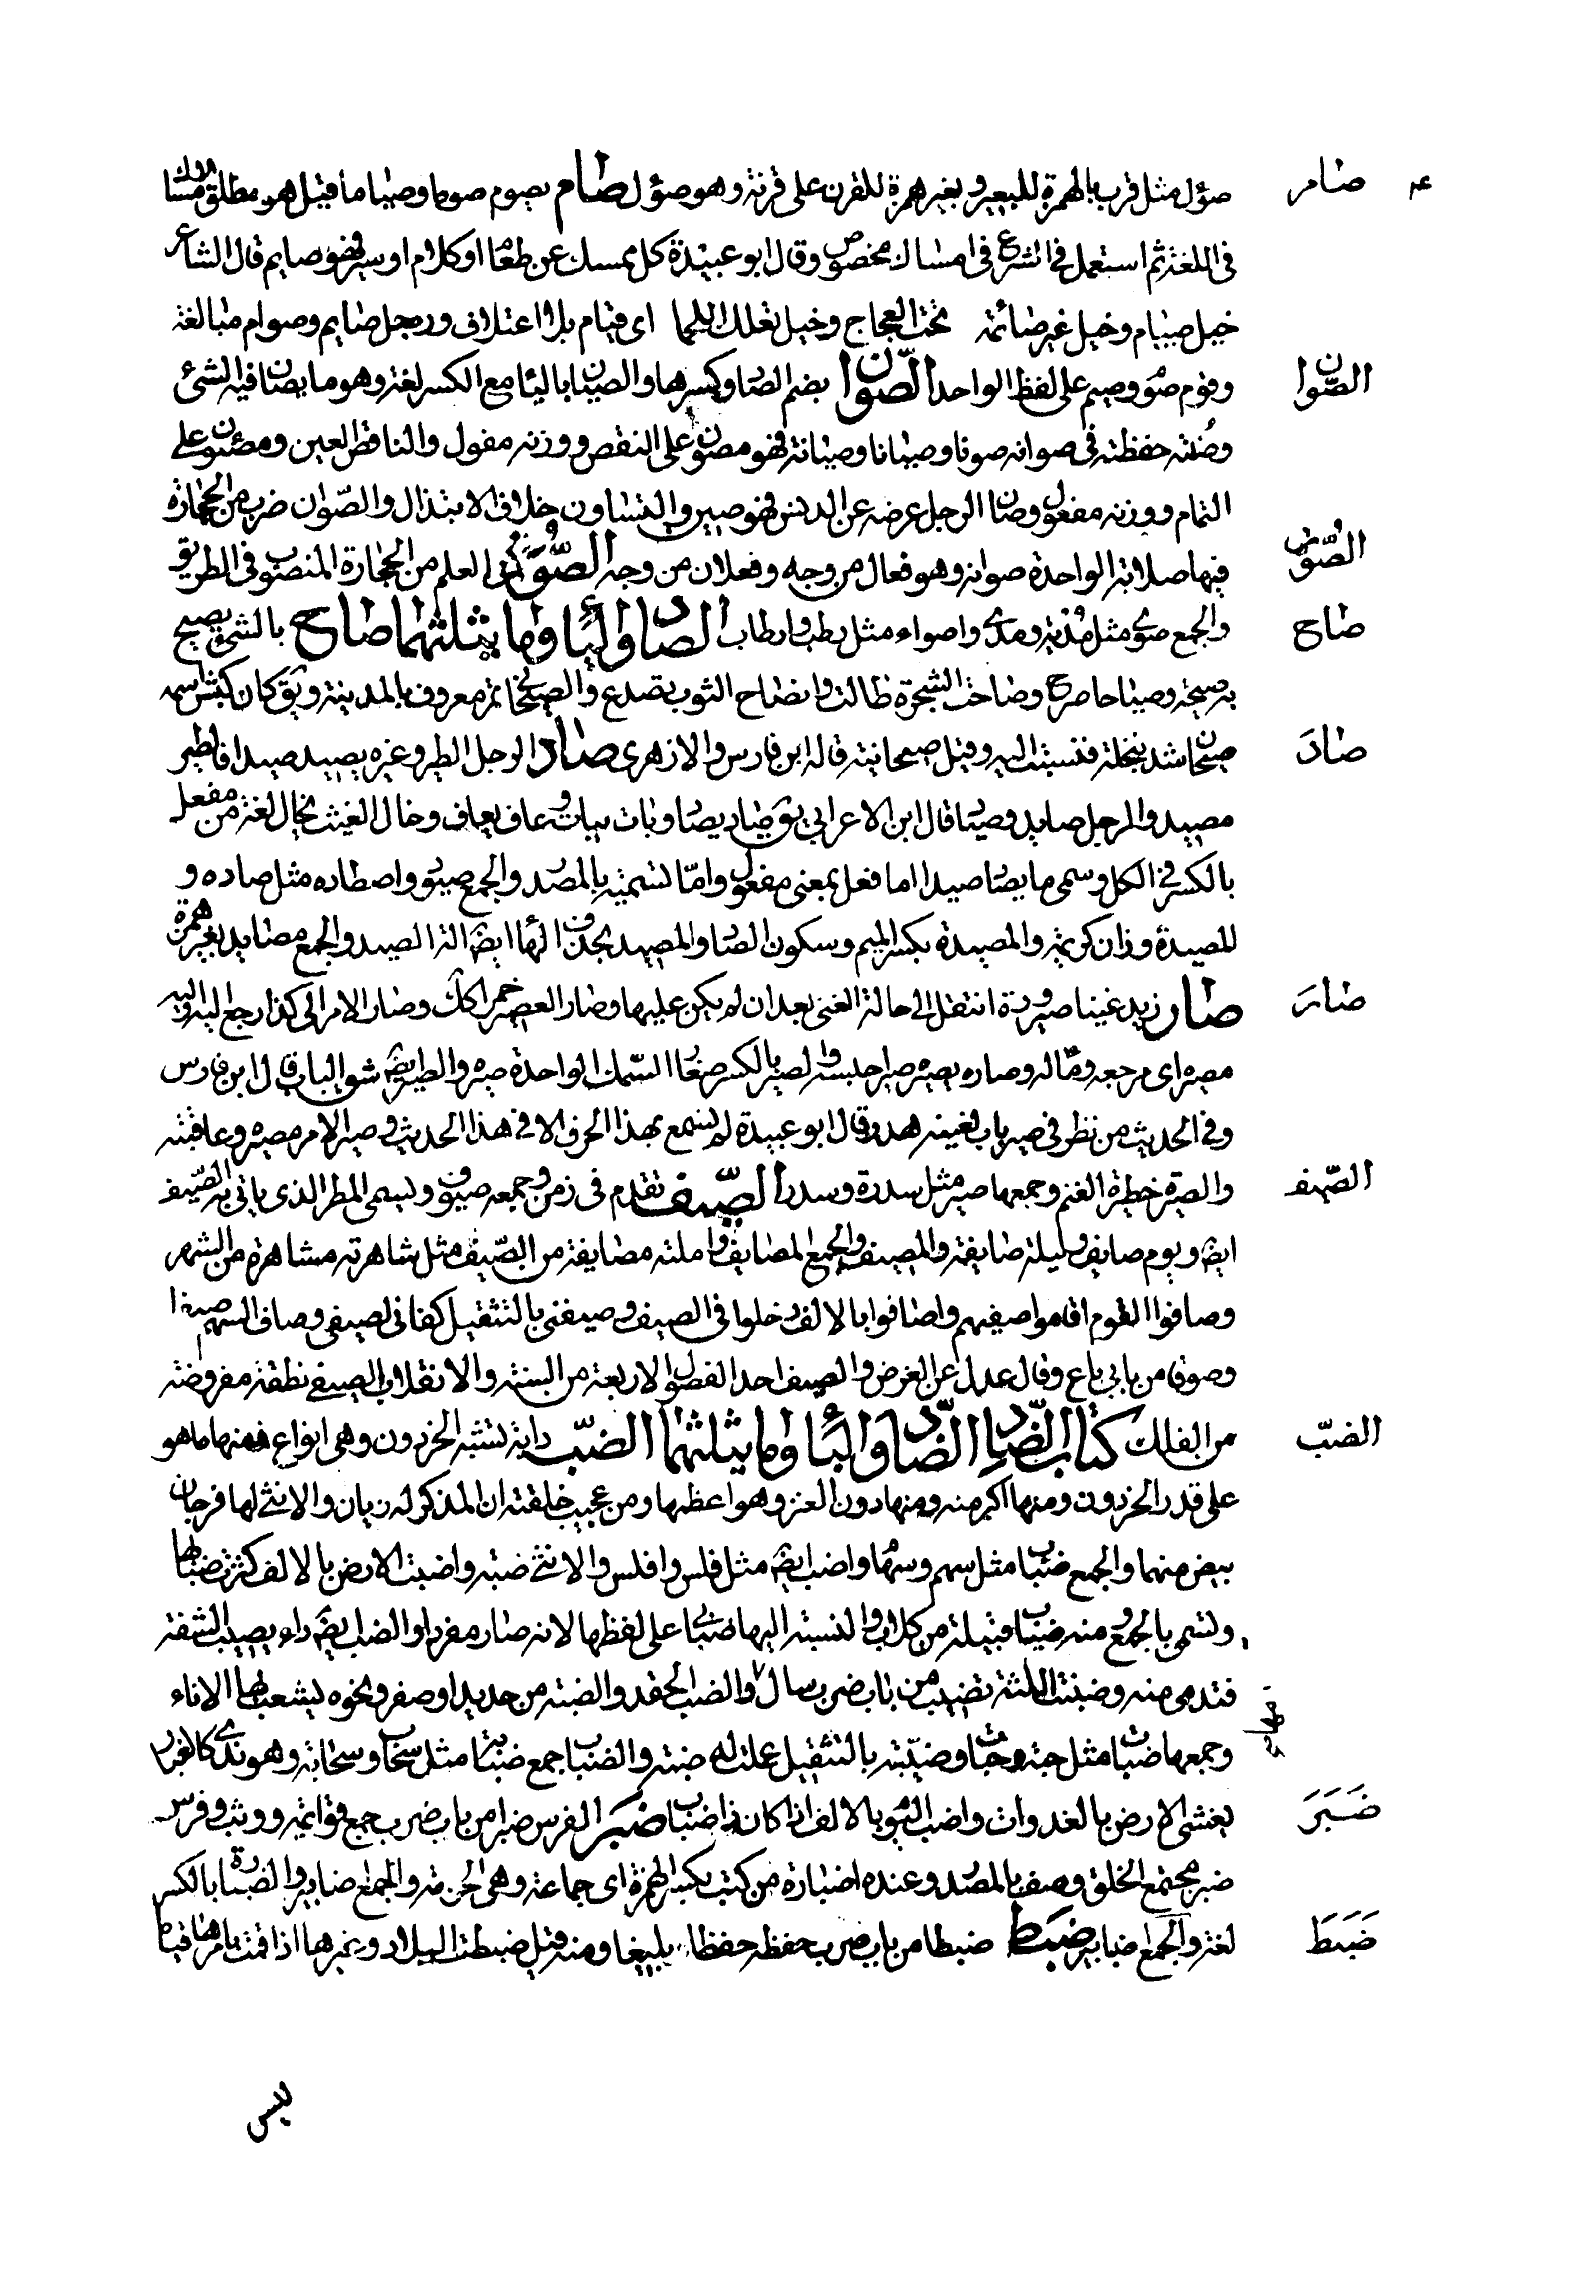 صام
صؤل مثل قرب بالهمزة للبعير وبغير همزة للقرن على قرنه وهو صؤل صام يصوم صوما وصياما قيل هو مطلق الامساك
فى اللغة ثم استعمل فى الشرع فى امساك مخصوص وقال ابو عبيدة كل ممسك عن طعام او كلام او سير فهو صايم قال الشاعر
خيل صيام وخيل غير صائمة تحت العجاج وخيل تعلك اللجما اى قيام بلا اعتلاف ورجل صايم وصوام مبالغة
الصّوان
وقوم صوّم وصيم على لفظ الواحد الصّوان بضم الصاد وكسرها والصيان بالياء مع الكسر لغة وهو ما يصان فيه الشئ
وصُنته حفظته فى صوانه صونا وصيانا وصيانة فهو مصون على النقص ووزنه مفول والناقص العين ومصئون على
التمام ووزنه مفعول وصان الرجل عرضه عن الدنس فهو صين والتصاون خلاف الابتذال والصّوان ضرب من الحجارة
الصُّوَّة
فيها صلابة الواحدة صوانه وهو فعال من وجه وفعلان من وجه الصُّوَّة العلم من الحجارة المنصوب فى الطريق
صاح
والجمع صوى مثل مدية ومدى واصواء مثل رطب وارطاب الصاد والياء وما يثلثهما صاح بالشئ يصيح
به صيحة وصياحا صرخ وصاحت الشجرة طالت وانصاح الثوب تصدع والصيحانى تمر معروف بالمدينة ويق كان كبش اسمه
صادَ
صيحان شد بنخلة فنسبت اليه وقيل صيحانية قاله ابن فارس والازهرى صاد الرجل الطير وغيره يصيده صيدا فالطير
مصيد والرجل صايد وصياد قال ابن الاعرابي يق صاد يصاد وبات يبات وعاف يعاف وخال الغيث يخال لغة من مفعل
بالكسر فى الكل وسمى ما يصاد صيدا اما فعل بمعنى مفعول واما تسمية بالمصدر والجمع صيود واصطاده مثل صاده و
المصيدة وزان كريمة والمصيدة بكسر الميم وسكون الصاد والمصيد بحذف الهاء ايضا الة الصيد والجمع مصايد بغير همزة
صارَ
صار زيد غنيا صيرورة انتقل الى حالة الغنى بعد ان لم يكن عليها وصار العصير خمرا كذلك وصار الامر الى كذا رجع اليه واليه
مصيره اى مرجعه ومآله وصاره يصيره صيرا حبسه والصير بالكسر صغار السمك الواحدة صيره والصير ايضا شق الباب قال ابن فارس
وفى الحديث من نظر فى صير باب فعينه هدر وقال ابو عبيدة لم يسمع بهذا الحرف الا فى هذا الحديث وصير الامر مصيره وعاقبته
الصّيف
والصيرة حظيرة الغنم وجمعها صير مثل سدرة وسدر الصّيف تقدم فى زمن وجمعه صيوف ويسمى المطر الذى ياتى به الصّيف
ايضا ويوم صايف وليلة صايفة والمصيف والجمع المصايف وعاملته مصايفة من الصّيف مثل شاهرته مشاهرة من الشهر
وصاف القوم اقاموا صيفهم واصافوا بالالف دخلوا فى الصيف وصيفنى بالتثقيل كفانى لصيفى وصاف السهم صيفا
وصوفا من بابي باع وقال عدل عن الغرض والصيف احد الفصول الاربعة من السنة والانقلاب الصيفى نقطة مفروضة
الضبّ
من الفلك كتاب الضّاد الضّاد والباء وما يثلثهما الضبّ دابة تشبه الحرذون وهى انواع فمنها ما هو
على قدر الحرذون ومنها اكبر منه ومنها دون العنز وهو اعظمها ومن عجيب خلقته ان الذكر له زبان والانثى لها فرجان
يبيض منهما والجمع ضباب مثل سهم وسهام واضب ايضا مثل فلس وافلس والانثى ضبة واضبت الارض بالالف كثر ضبابها
وتسمى بالجمع منه ضباب قبيلة من كلاب والنسبة اليها ضبابى على لفظها لانه صار مفردا والضب ايضا داء يصيب الشفة
فتدمى منه وضبت اللثة تضب من باب ضرب سال والضب الحقد والضبة من حديد او صفر ونحوه يشعب بها الاناء
وجمعها ضبات مثل جنة وجنات وضبّبته بالتثقيل عملت له ضبة والضباب جمع ضبابة مثل سحاب وسحابة وهو ندى كالغبار
ضَبَرَ
يغشى الارض بالغدوات واضب اليوم بالالف اذا كان ذا ضباب ضبر الفرس ضبرا من باب ضرب جمع قوائمه ووثب وفرس
ضبر مجتمع الخلق وصف بالمصدر وعنده اضبارة من كتب بكسر الهمزة اى جماعة وهى الحزمة والجمع ضابير والضبارة بالكسر
ضَبَطَ
لغة والجمع ضبابير ضبط ضبطا من باب ضرب حفظه حفظا بليغا ومنه قيل ضبطت البلاد وغيرها اذا قمت بامرها قياما
ليس